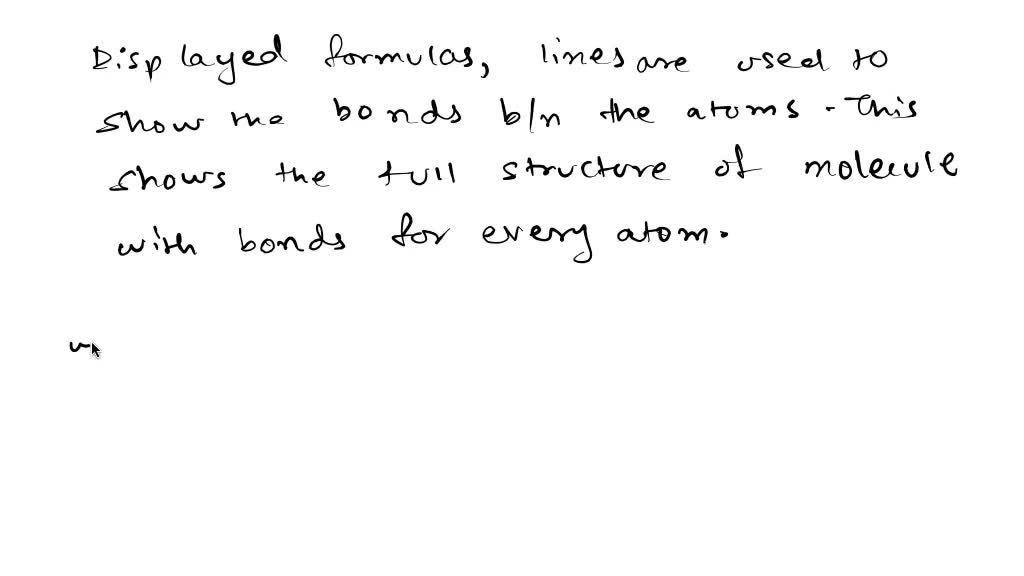 Displayed formulas, lines are used to
show the bonds b/n the atoms. This
shows the full structure of molecule
with bonds for every atom.